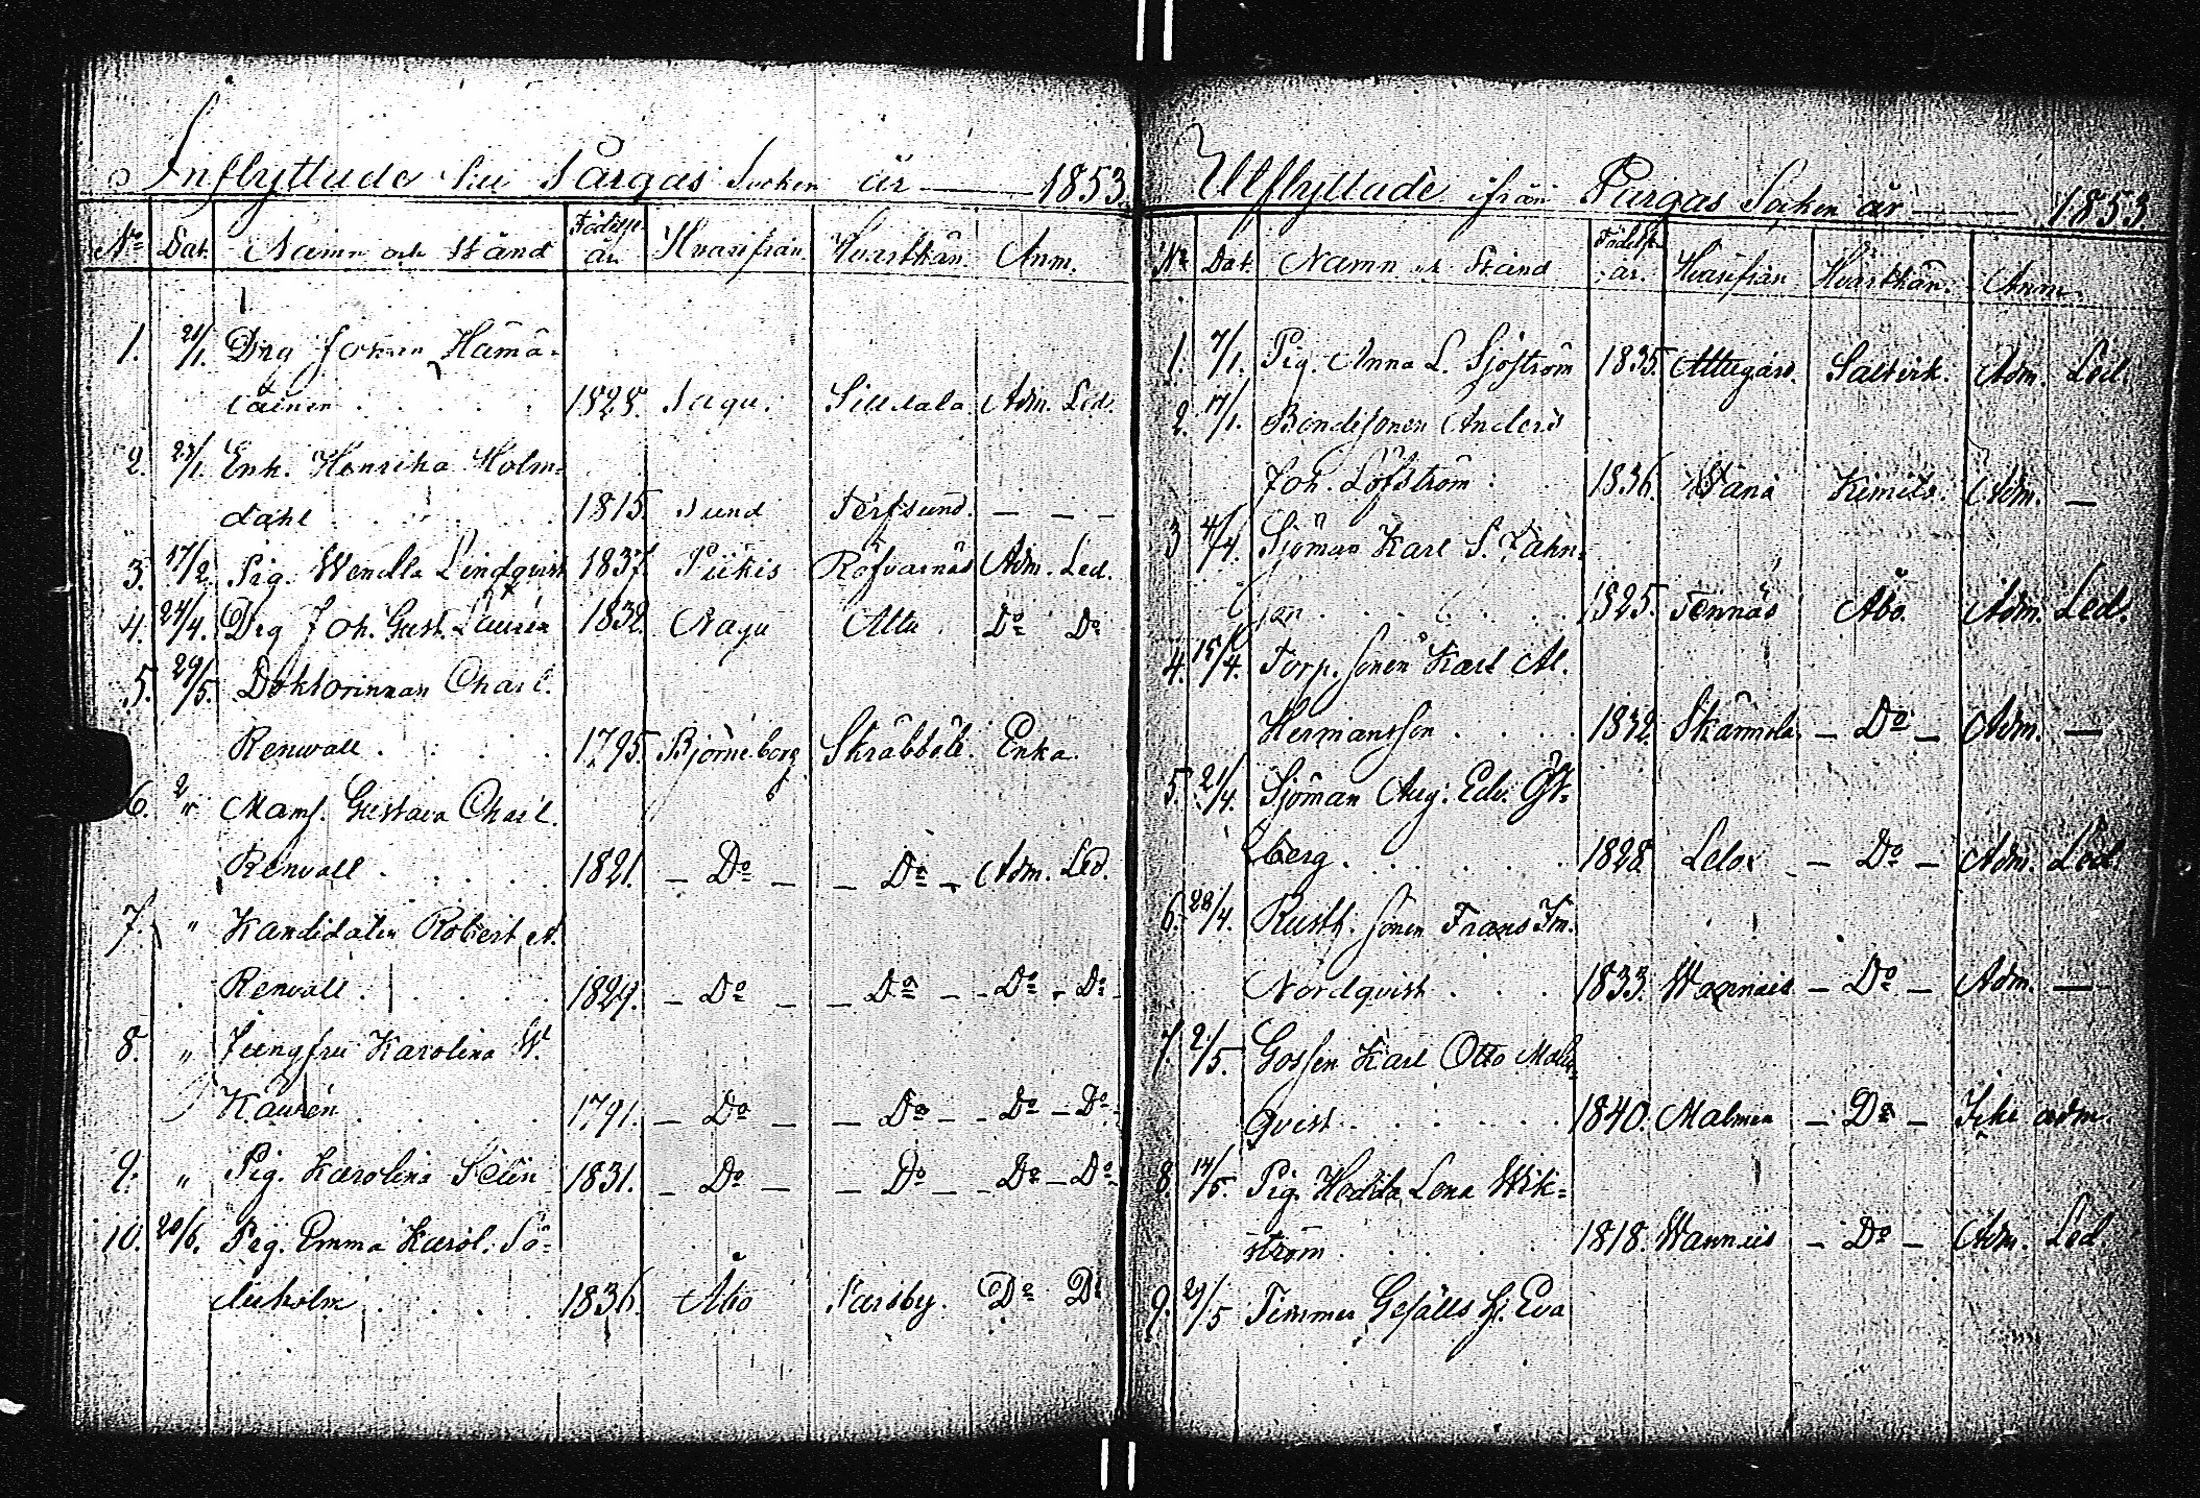 Inflyttade till Pargas Socken år — 1853.
No Dat. Namn och Stånd Födelse år Hvarifrån Hvarthän Anm.
1. 21/1. Drg Johan Hämä-
läinen . . . . 1828. Sagu. Sildala Adm. Led.
2. 28/1. Enk. Henrika Holm-
dahl . . . . 1815. Sund Terfsund. — — —
3. 17/2. Pig. Wendla Lindqvist 1837. Piikis Röfvarnäs Adm. Led.
4. 24/4. Drg Joh. Gust. Laurén 1832. Nagu Attu Do Do
5. 29/5. Doktorinnan Charl.
Renwall . . . . 1795. Björneborg Skräbböle. Enka.
6. " Mamf. Gustava Charl.
Renvall . . . . 1821. — Do — — Do — Adm. Led.
7. " Kandidaten Robert A.
Renvall . . . . 1829. — Do — — Do — — Do — Do
8. " Jungfru Karolina W.
Kaurén . . . . 1791. — Do — — Do — — Do — Do —
9. " Pig. Karolina Selin 1831. — Do — — Do — — Do — Do —
10. 20/6. Pig. Emma Karol. Sö-
derholm . . . . 1836. Åbo Parsby. Do Do
Utflyttade ifrån Pargas Socken år — 1853.
No Dat. Namn och Stånd Födelse år. Hvarifrån Hvarthän. Anm.
1. 7/1. Pig. Anna L. Sjöström 1835. Attugård. Saltvik. Adm. Led.
2. 17/1. Bondesonen Anders
Joh. Löfström . 1836. Wånå Kimito. Adm. —
3 4/4. Sjöman Karl S.
1825. Tennäs Åbo. Adm. Led.
4. 15/4. Torp. sonen Karl Al.
Hermansson . . . . 1832. Skärmola — Do — Adm. —
5. 21/4. Sjöman Aug. Edv. Öst-
berg . . . . 1828. Lelox — Do — Adm. Led.
6. 28/4. Rusth. sonen Frans Im.
Nordqvist . . . 1833. Wannais — Do — Adm. —
7. 2/5. Gossen Karl Otto Malm-
qvist . . . . 1840. Malmen — Do — Icke adm.
8. 14/5. Pig. Hedda Lena Wik-
ström . . . . 1818. Wannais — Do — Adm. Led.
9. 21/5 Timmer Gesälls h. Eva